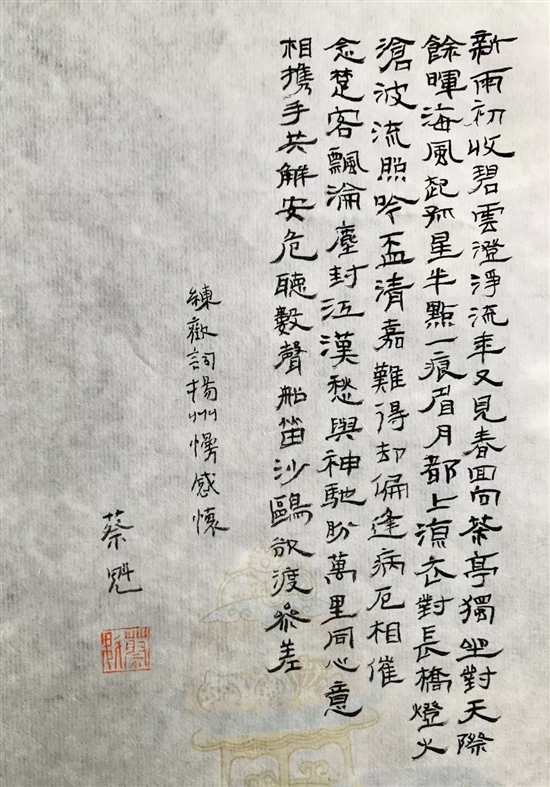 新雨初收碧雲澄淨流年又見春回向茶亭獨坐對天際
餘暉海風起孤星半點一痕眉月都上涼衣對長橋燈火
滄波流照吟盃清嘉難得却偏逢病厄相催
念楚客飄淪塵封江漢愁與神馳盼萬里同心意
相攜手共解安危聽數聲船笛沙鷗欲渡參差
練歡詞揚州慢感懷
蔡